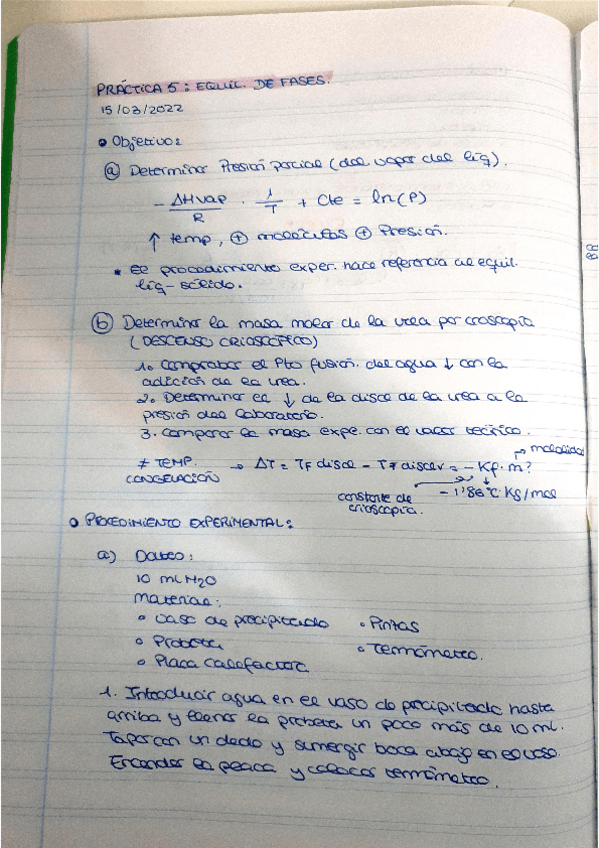 PRÁCTICA 5: EQUIL. DE FASES.
15/03/2022
• Objetivo:
(a) Determinar Presión parcial (del vapor del líq).
- ΔHvap/R · 1/T + Cte = ln(P)
↑ temp, ⊕ moléculas ⊕ Presión.
• El procedimiento exper. hace referencia al equil. líq-sólido.
(b) Determinar la masa molar de la urea por croscopía
(DESCENSO CRIOSCÓPICO)
1. Comprobar el Pto fusión. del agua ↓ con la
adición de la urea.
2. Determinar el ↓ de la disol de la urea a la
presión del laboratorio.
3. Comparar la masa expe. con el valor teórico.
→ molalidad
≠ TEMP. CONGELACIÓN → ΔT = TF disol - TF disolv = - Kf · m?
constante de crioscopía. - 1'86 °C·Kg/mol
• PROCEDIMIENTO EXPERIMENTAL:
a) Datos:
10 ml H2O
Material:
• Vaso de precipitado • Pinzas
• Probeta • Termómetro.
• Placa calefactora
1. Introducir agua en el vaso de precipitado hasta
arriba y llenar la probeta un poco más de 10 ml.
Tapar con un dedo y sumergir boca abajo en el vaso.
Encender la placa y colocar termómetro.